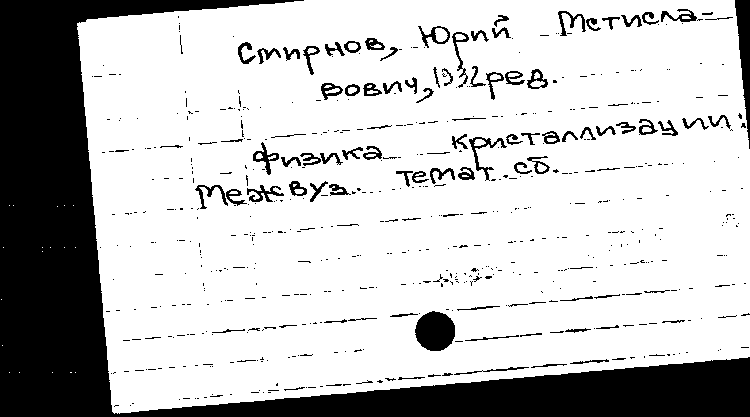 Смирнов, Юрий Мстисла-
вович, 1932 ред.
Физика кристаллизации:
Межвуз. темат. сб.